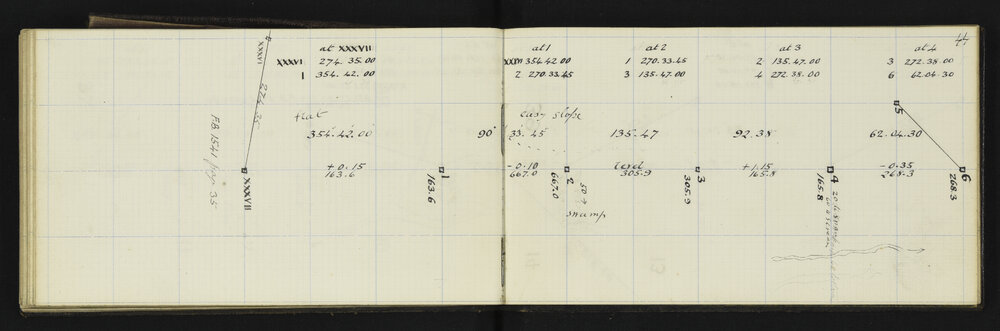 44
at XXXVII
XXXVI 274. 35. 00
1 354. 42. 00
at 1
XXXVII 354 42 00
2 270. 33. 45
at 2
1 270. 33. 45
3 135. 47. 00
at 3
2 135. 47. 00
4 272. 38. 00
at 4
3 272. 38. 00
6 62. 04. 30
XXXVI
274. 35
flat
easy slope
5
354. 42. 00
90° 33. 45
135. 47
92. 38
62. 04. 30
+ 0. 15
163. 6
- 0. 10
667. 0
level
305. 9
+ 1. 15
165. 8
- 0. 35
268. 3
F.B. 1541 page 35
XXXVII
1
163. 6
2
667. 0
3
305. 9
4
165. 8
6
268. 3
swamp